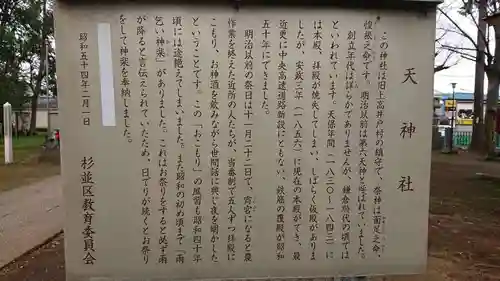 天神社
この神社は旧上高井戸村の鎮守で、祭神は面足之命、
惶根之命です。明治以前は第六天神と呼ばれていました。
創立年代は詳らかでありませんが、鎌倉時代の頃では
といわれています。天保年間(一八三〇～一八四三)に
は本殿、拝殿が焼失してしまい、しばらく仮殿がありま
したが、安政三年(一八五六)に現在の本殿ができ、最
近更に中央高速道路新設にともない、鉄筋の覆殿が昭和
五十年にできました。
明治以前の祭日は十一月二十二日で、宵宮になると農
作業を終えた近所の人たちが、当番制で五人ずつ拝殿に
こもり、お神酒を飲みながら世間話に興じ夜を明かした
ということです。この「おこもり」の風習も昭和四十年
頃には途絶えてしまいました。また昭和の初め頃まで「雨
乞い神楽」がありました。これはお祭りをすると必ず雨
が降ると言伝えられていたため、日でりが続くとお祭り
をして神楽を奉納しました。
昭和五十四年二月一日
杉並区教育委員会